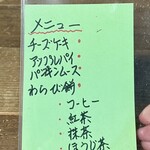 メニュー
チーズケーキ
アップルパイ
パンプキンムース
わらび餅
・コーヒー
・紅茶
・抹茶
・ほうじ茶